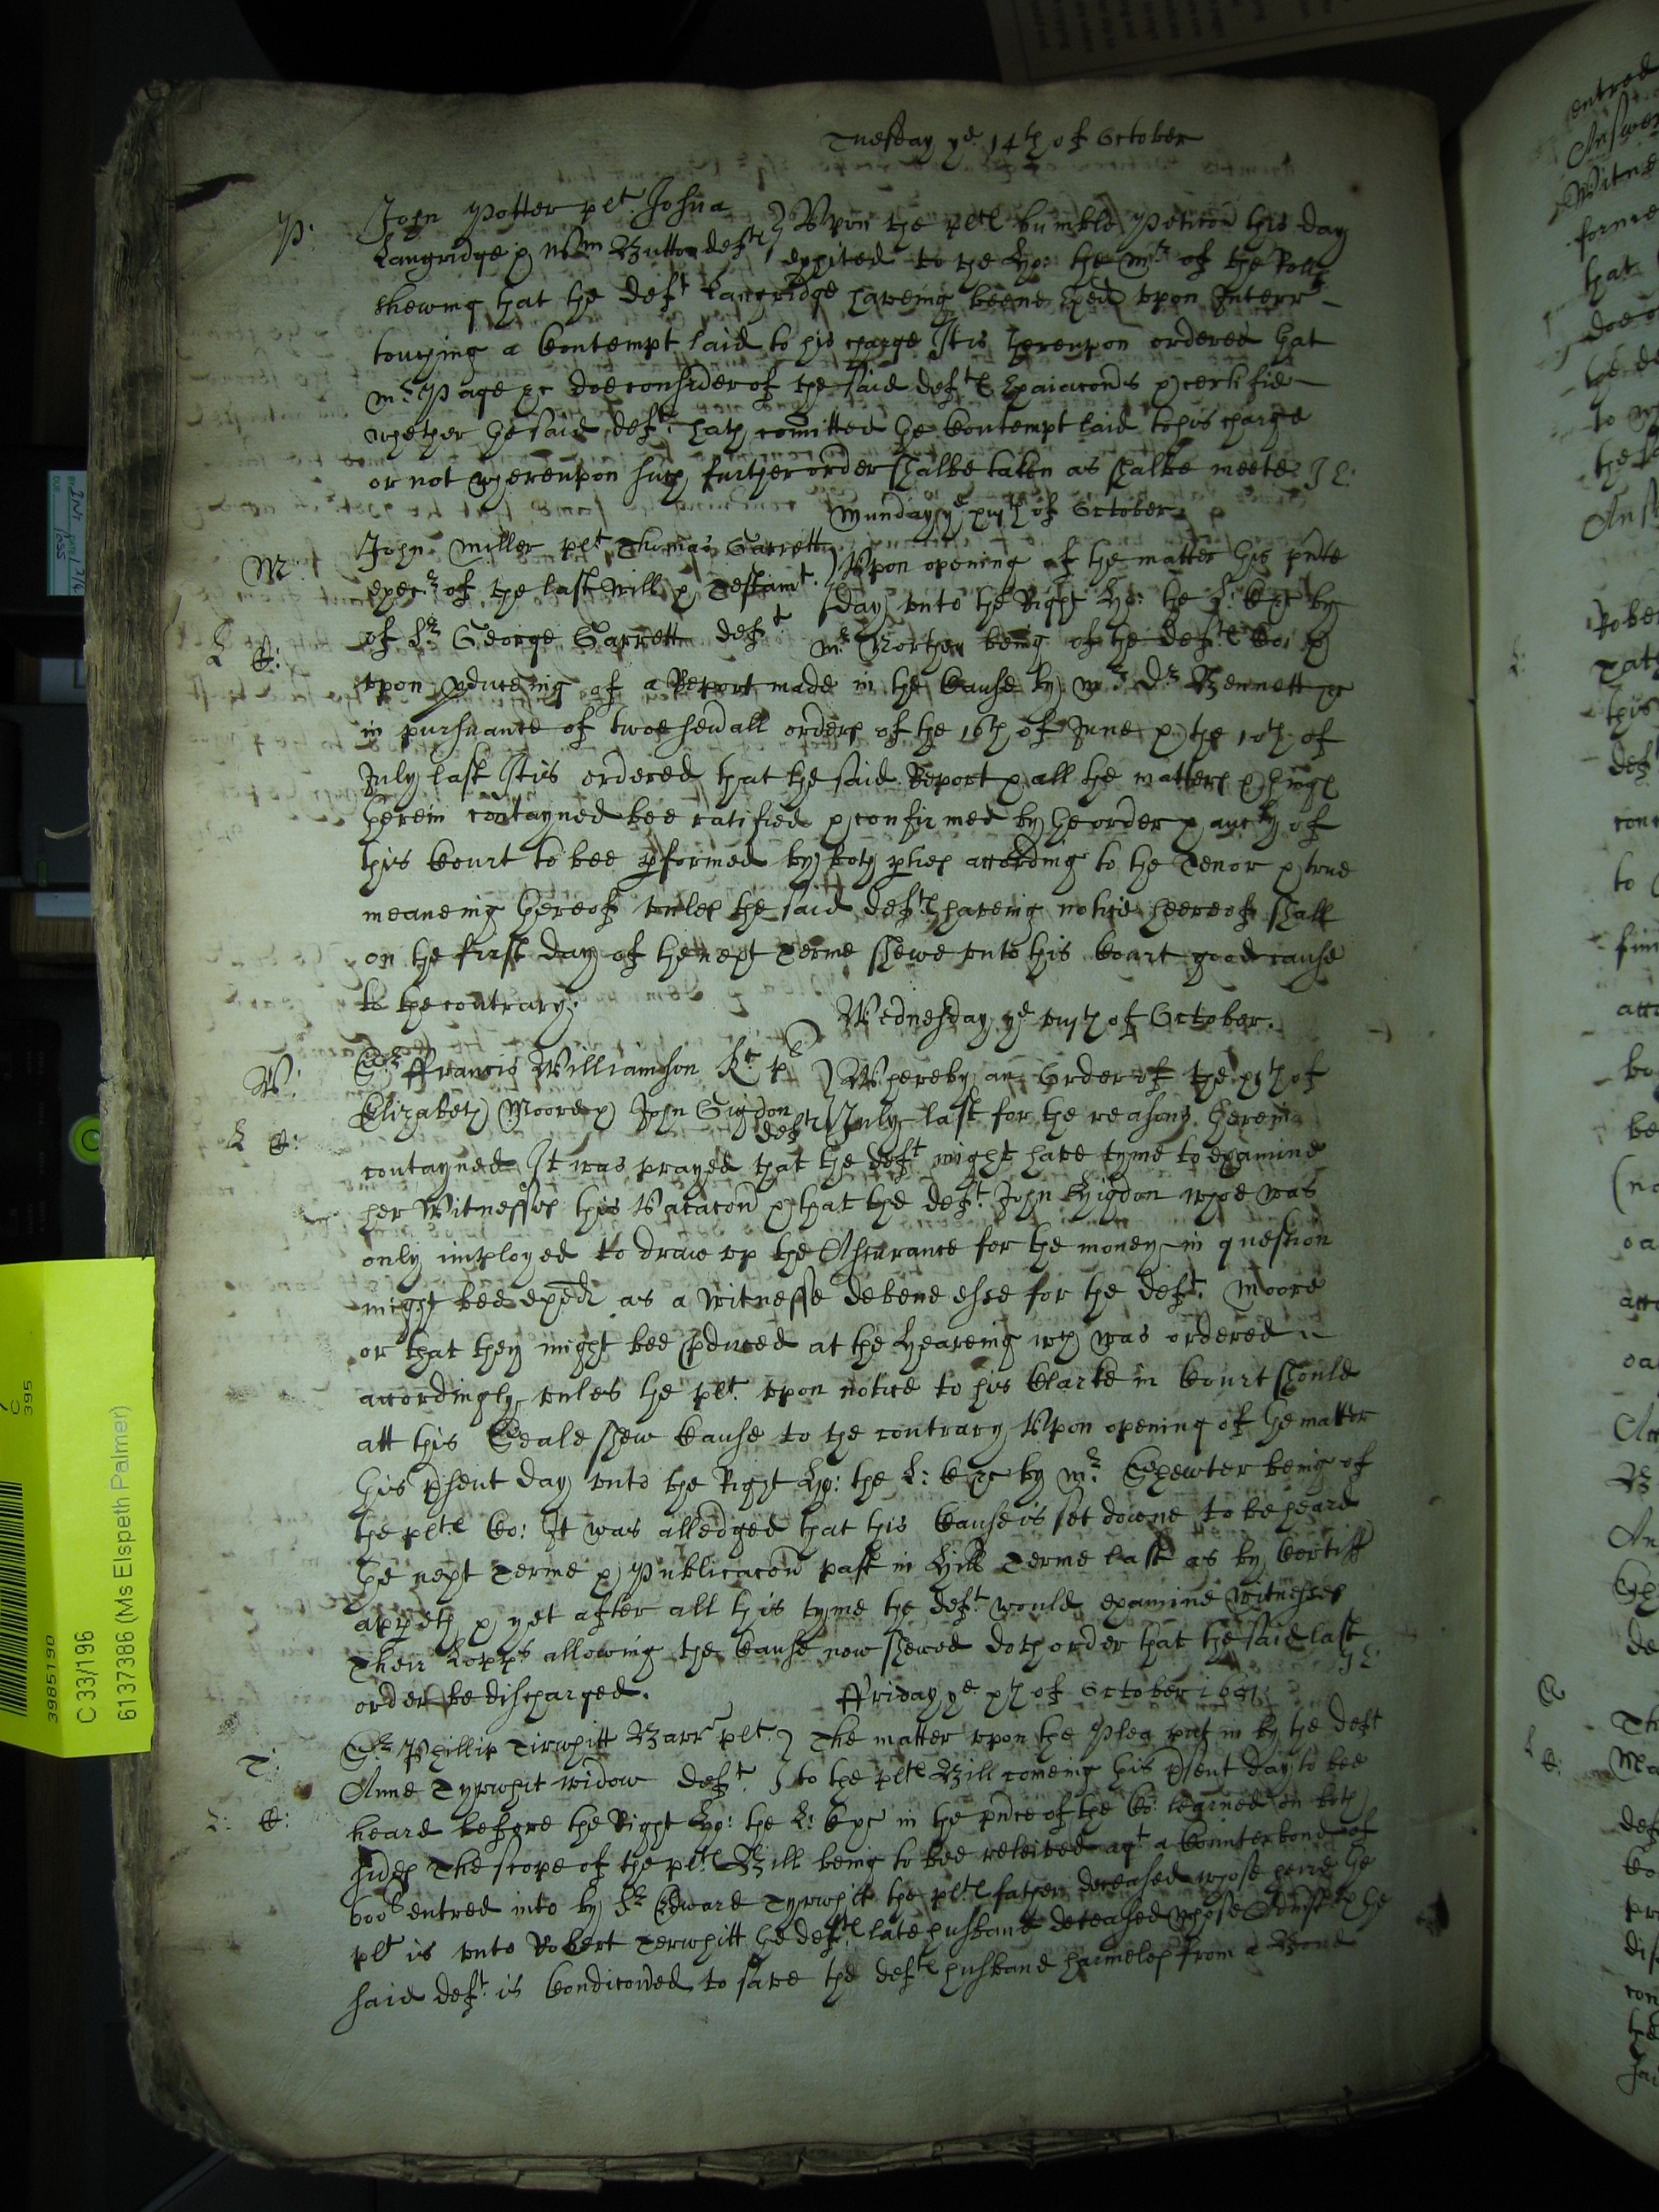 Tuesday ye 14th of October
P: John Potter plt Joshua
Langridge & Wm Button defts
Upon the plts humble Peticon this day
exhited to the Ho: the Mr of the Rolls
shewing that the deft Langridge haveing beene exed upon Interr
touching a Contempt laid to his charge It is thereupon ordered that
Mr Page &c doe consider of the said defts Exaiacons & certifie
whether the said deft hath comitted the Contempt laid to his charge
or not whereupon such further order shalbe taken as shalbe meete
Munday ye of October
M: John Miller plt Thomas Garrett
execr of the last Will & Testamt
of Sr George Garrett deft
Upon opening of the matter this pnte
day unto the Right Ho: the L: &c by
Mr Northey being of the defts Co: &
upon pduceing of a Report made in the Cause by Mr Dr Bennett &c
in pursuance of twoe sevall orders of the 16th of June & the 10th of
July last It is ordered that the said Report & all the matters & things
therein contayned bee ratified & confirmed by the order & aucthy of
this Court to bee pformed by both pties according to the Tenor & true
meaneing thereof unles the said defts haveing notice heereof shall
on the first day of the next Terme shewe unto this Court good cause
to the contrary.
Wednesday ye of October.
W: Sr Ffrancis Williamson Kt
Elizabeth Moore & John Higdon
defts
Whereby an Order of the of
July last for the reasons therein
contayned It was prayed that the deft might have tyme to examine
her Witnesses this Vacacon & that the deft John Higdon whoe was
only imployed to draw up the Assurance for the money in question
might bee exed as a witnesse de bene esse for the deft Moore
or that they might bee pduced at the Heareing wch was ordered
accordingly unles the plt upon notice to his Clarke in Court should
att this Seale shew Cause to the contrary Upon opening of the matter
this psent day unto the Right Ho: the L: &c by Mr Shewter being of
the plts Co: It was alledged that this Cause is set downe to be heard
the next Terme & Publicacon past in Terme last as by Certiff
appeth & yet after all this tyme the deft would examine witnesses
Their Lopps allowing the Cause now shewed doth order that the said last
order be discharged.
Ffriday ye of October
T: Sr Phillip Tirwhitt Barrt plt
Anne Tyrwhit widow deft
The matter upon the Plea put in by the deft
to the plts Bill comeing this psent day to bee
heard before the Right Ho: the L: &c in the pnce of the Co: learned on both
sides The scope of the plts Bill being to bee releived agt a Counterbond of
entred into by Sr Edward Tyrwhitt the plts father deceased whose heire the
plt is unto Robert Terwhitt the defts late husband deceased whose the
said deft is Condiconed to save the defts husband harmeles from a Bond
C 33/196
6137386 (Ms Elspeth Palmer)
3985190